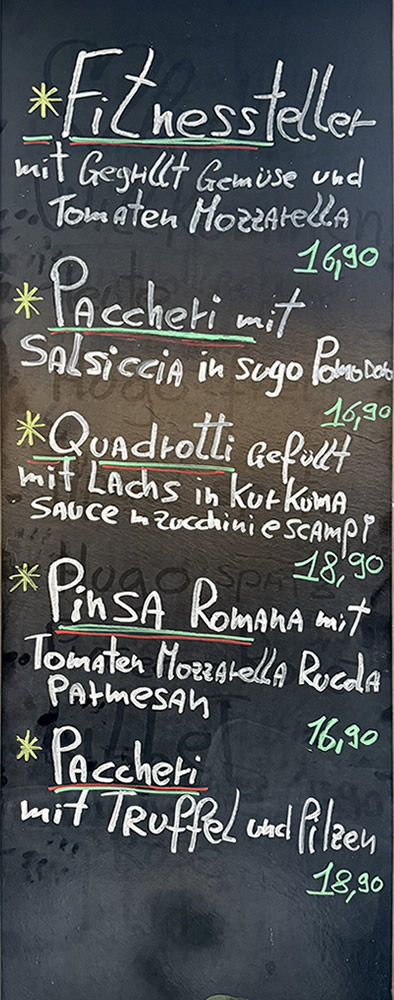 * Fitnessteller
mit Gegrillt Gemüse und
Tomaten Mozzarella
16,90
* Paccheri mit
Salsiccia in sugo Pomodoro
16,90
* Quadrotti Gefüllt
mit Lachs in Kurkuma
Sauce m zucchini e scampi
18,90
* Pinsa Romana mit
Tomaten Mozzarella Rucola
Parmesan
16,90
* Paccheri
mit Trüffel und Pilzen
18,90